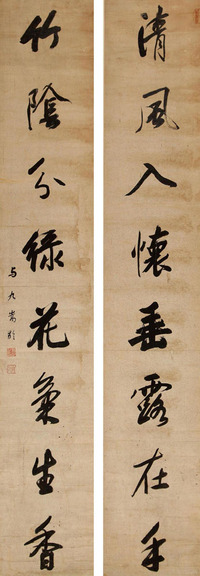 清風入懷垂露在手
竹陰分綠花氣生香